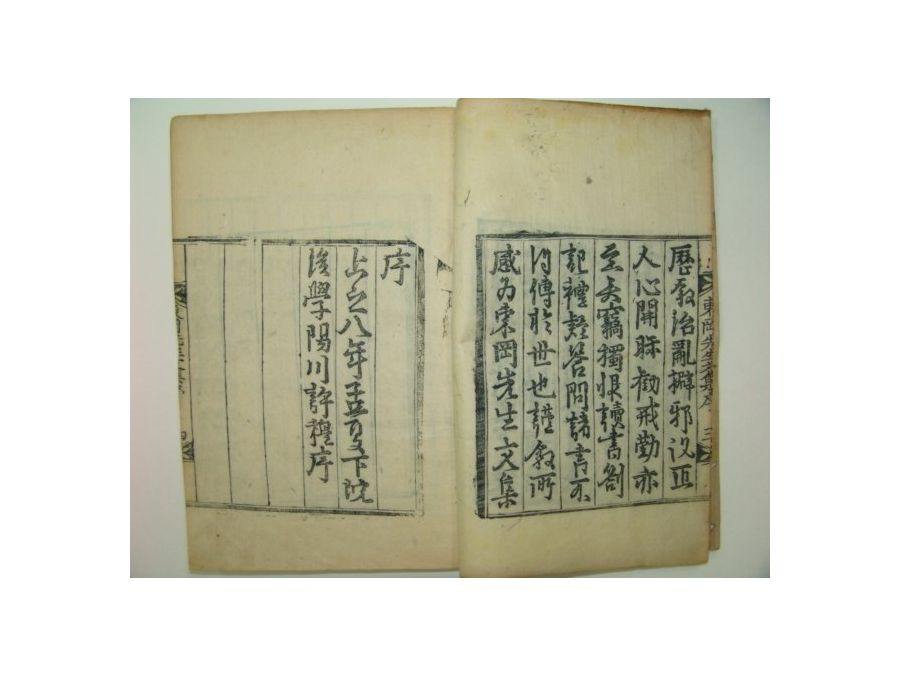 東岡先生文集序 三
歷敘治亂辨邪說正
人心開眎勸戒勤亦
至矣竊獨恨讀書劄
記禮疑答問諸書不
得傳於世也謹敘所
感爲東岡先生文集
序
上之八年孟夏下浣
後學陽川許穆序
四